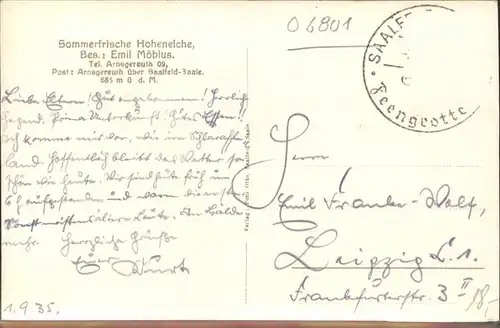 Sommerfrische Hoheneiche,
Bes.: Emil Möbius.
Tel. Arnsgereuth 09,
Post: Arnsgereuth über Saalfeld-Saale.
685 m ü d. M.
06801
SAALF
Feengrotte
Liebe Eltern! Gut angekommen! Herrliche
Gegend, Prima Unterkunft! Gutes Essen!
Ich komme mir vor, wie im Schlaraffen
land. Hoffentlich bleibt das Wetter so
schön wie heute. Wir sind heute früh um
6 h aufgestanden und waren die ersten
Sonst meistens ältere Leute.
mehr. Herzliche Grüße
Euer Kurt
1.9.35.
Herrn
Emil Franke-Wolf,
Leipzig C.1.
Frankfurterstr. 3 II